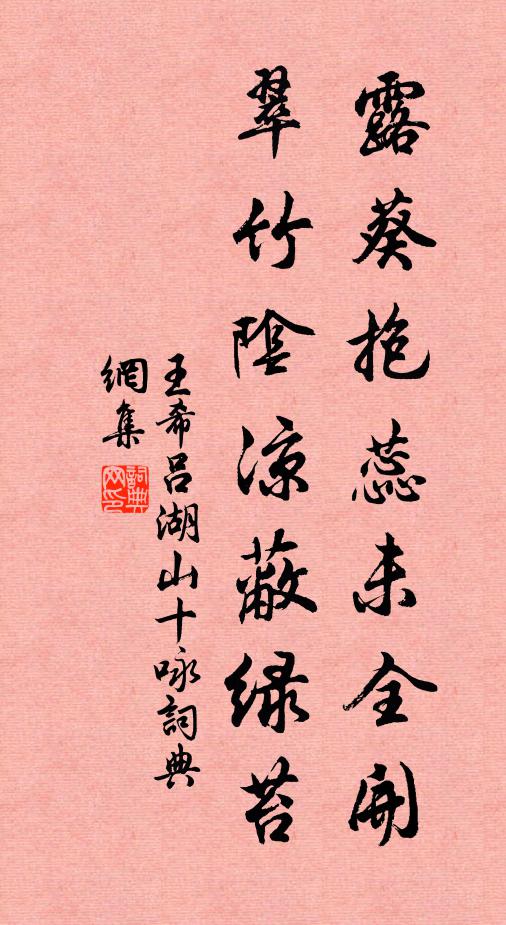 露葵抱蕊未全開
翠竹陰凉蔽緑苔
王希吕湖山十咏詞典
網集
詞典
网印